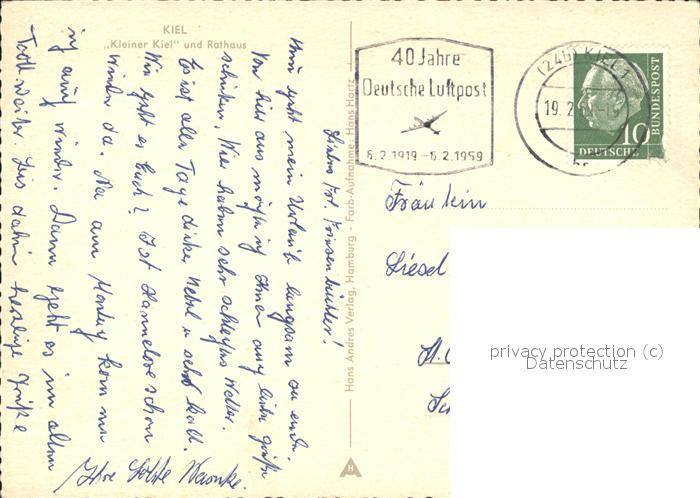 KIEL
„Kleiner Kiel" und Rathaus
40 Jahre
Deutsche Luftpost
6.2.1919–6.2.1959
(24b) KIEL 1
19.2.
10
DEUTSCHE
BUNDESPOST
Hans Andres Verlag, Hamburg - Farb-Aufnahme: Hans Hartz
Fräulein
Liesel
privacy protection (c)
Datenschutz
Liebes Frl.
Nun geht mein Urlaub langsam zu ende.
Von hier aus möchte ich Ihnen liebe Grüße
schicken. Wir haben sehr schlechtes Wetter.
Es ist alle Tage dicke Nebel u. sehr kalt.
Wie geht es Euch? Ist Hannelore schon
wieder da. Montag komme
ich auch wieder. Dann geht es im alten
Trott weiter. Bis dahin herzliche Grüße
Ihre